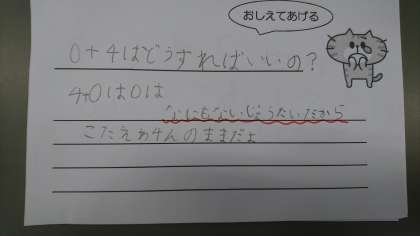 おしえてあげる
0+4はどうすればいいの?
4+0は0は
なにもないじょうたいだから
こたえわ4んのままだよ